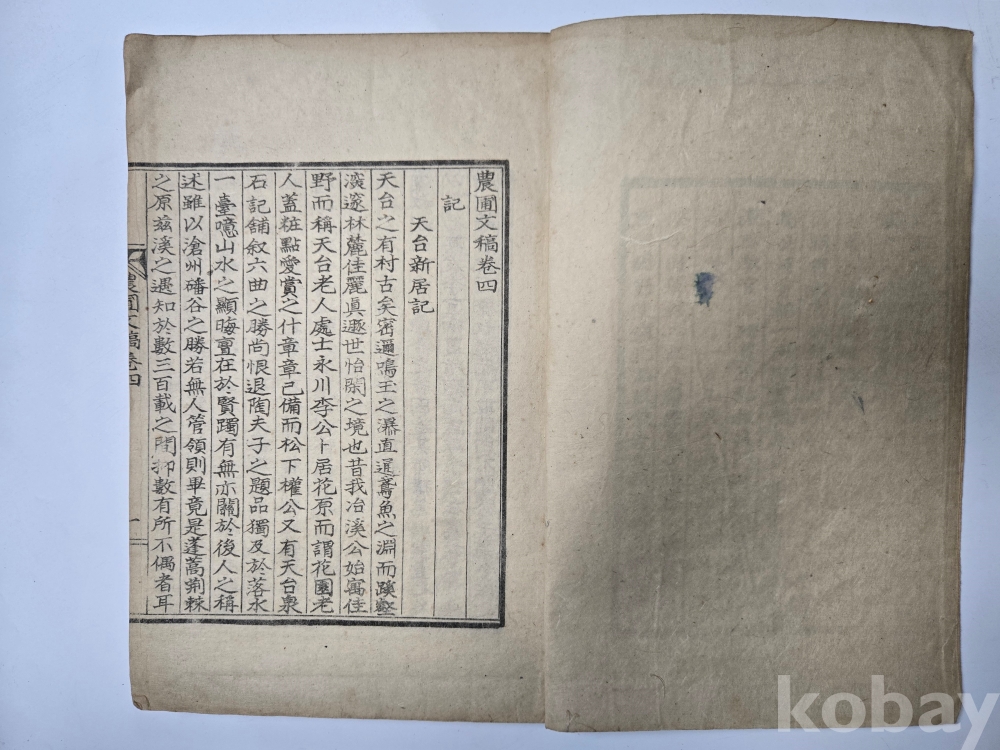 農圃文稿卷四
記
天台新居記
天台之有村古矣密邇鳴玉之瀑直通鳶魚之淵而蹊壑
濱邃林麓佳麗眞遯世怡閑之境也昔我冶溪公始寓住
野而稱天台老人處士永川李公卜居花原而謂花園老
人盖粧點愛賞之什章章已備而松下權公又有天台泉
石記舖叙六曲之勝尚恨退陶夫子之題品獨及於落水
一臺噫山水之顯晦亶在於賢躅有無亦關於後人之稱
述雖以滄州磻谷之勝若無人管領則畢竟是蓬蒿荊棘
之原玆溪之遇知於數三百載之間抑數有所不偶者耳
農圃文稿卷四
一
kobay